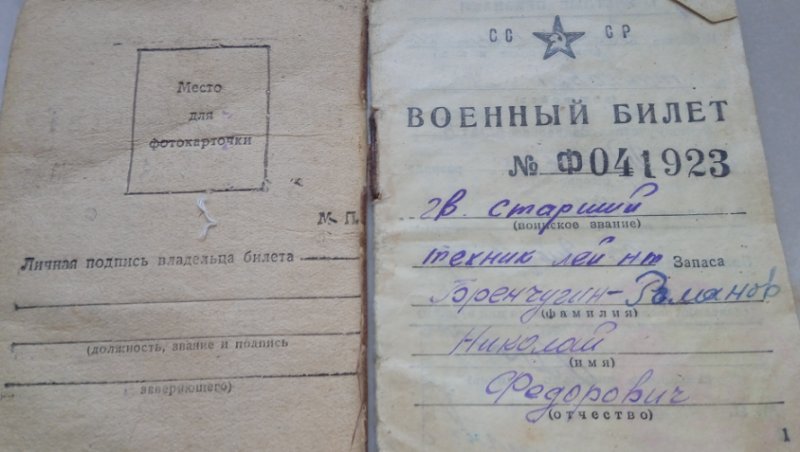 Место
для
фотокарточки
М. П.
Личная подпись владельца билета
(должность, звание и подпись
заверяющего)
СС СР
ВОЕННЫЙ БИЛЕТ
№ Ф 041923
гв. старший
(воинское звание)
техник лей нт Запаса
Боенчугин-Романов
(фамилия)
Николай
(имя)
Федорович
(отчество)
1